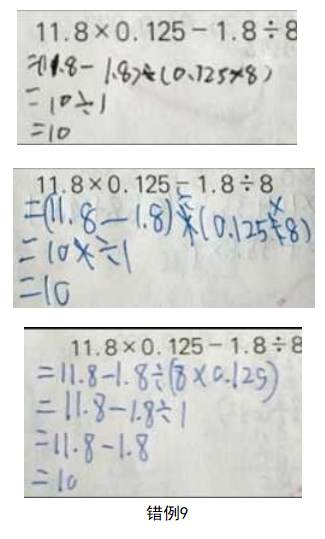 11.8×0.125－1.8÷8
=(11.8-1.8)÷(0.125×8)
=10÷1
=10
11.8×0.125－1.8÷8
=(11.8-1.8)÷(0.125×8)
=10÷1
=10
11.8×0.125－1.8÷8
=11.8-1.8÷(8×0.125)
=11.8-1.8÷1
=11.8-1.8
=10
错例9